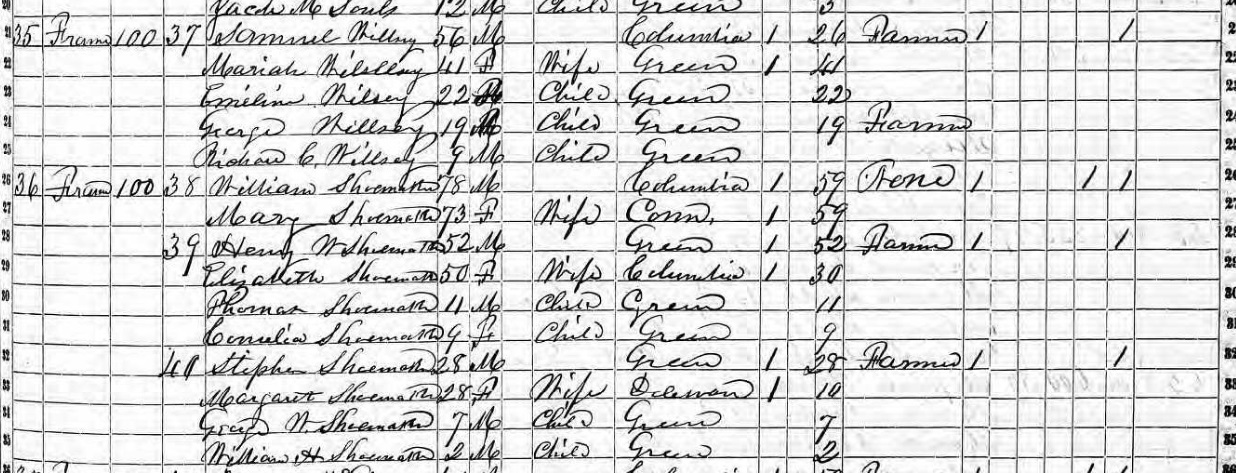 20 Jacob M Souls 12 M Child Green 3
21 35 Frame 100 37 Samuel Willsey 56 M Columbia 1 26 Farmer 1 1 21
22 Mariah Wilsey 41 F Wife Green 1 41 22
23 Emeline Wilsey 22 Child Green 22 23
24 George Willsey 19 M Child Green 19 Farmer 24
25 C. Willsey 9 M Child Green 25
26 36 Frame 100 38 William Shoemaker 78 M Columbia 1 59 None 1 1 1 26
27 Mary Shoemaker 73 F Wife Conn. 1 59 27
28 39 Henry W Shoemaker 52 M Green 1 52 Farmer 1 1 28
29 Elizabeth Shoemaker 50 F Wife Columbia 1 30 29
30 Thomas Shoemaker 11 M Child Green 11 30
31 Cornelia Shoemaker 9 F Child Green 9 31
32 40 Stephen Shoemaker 28 M Green 1 28 Farmer 1 1 32
33 Margarett Shoemaker 28 F Wife 1 10 33
34 George W Shoemaker 7 M Child Green 7 34
35 William H Shoemaker 2 M Child Green 2 35